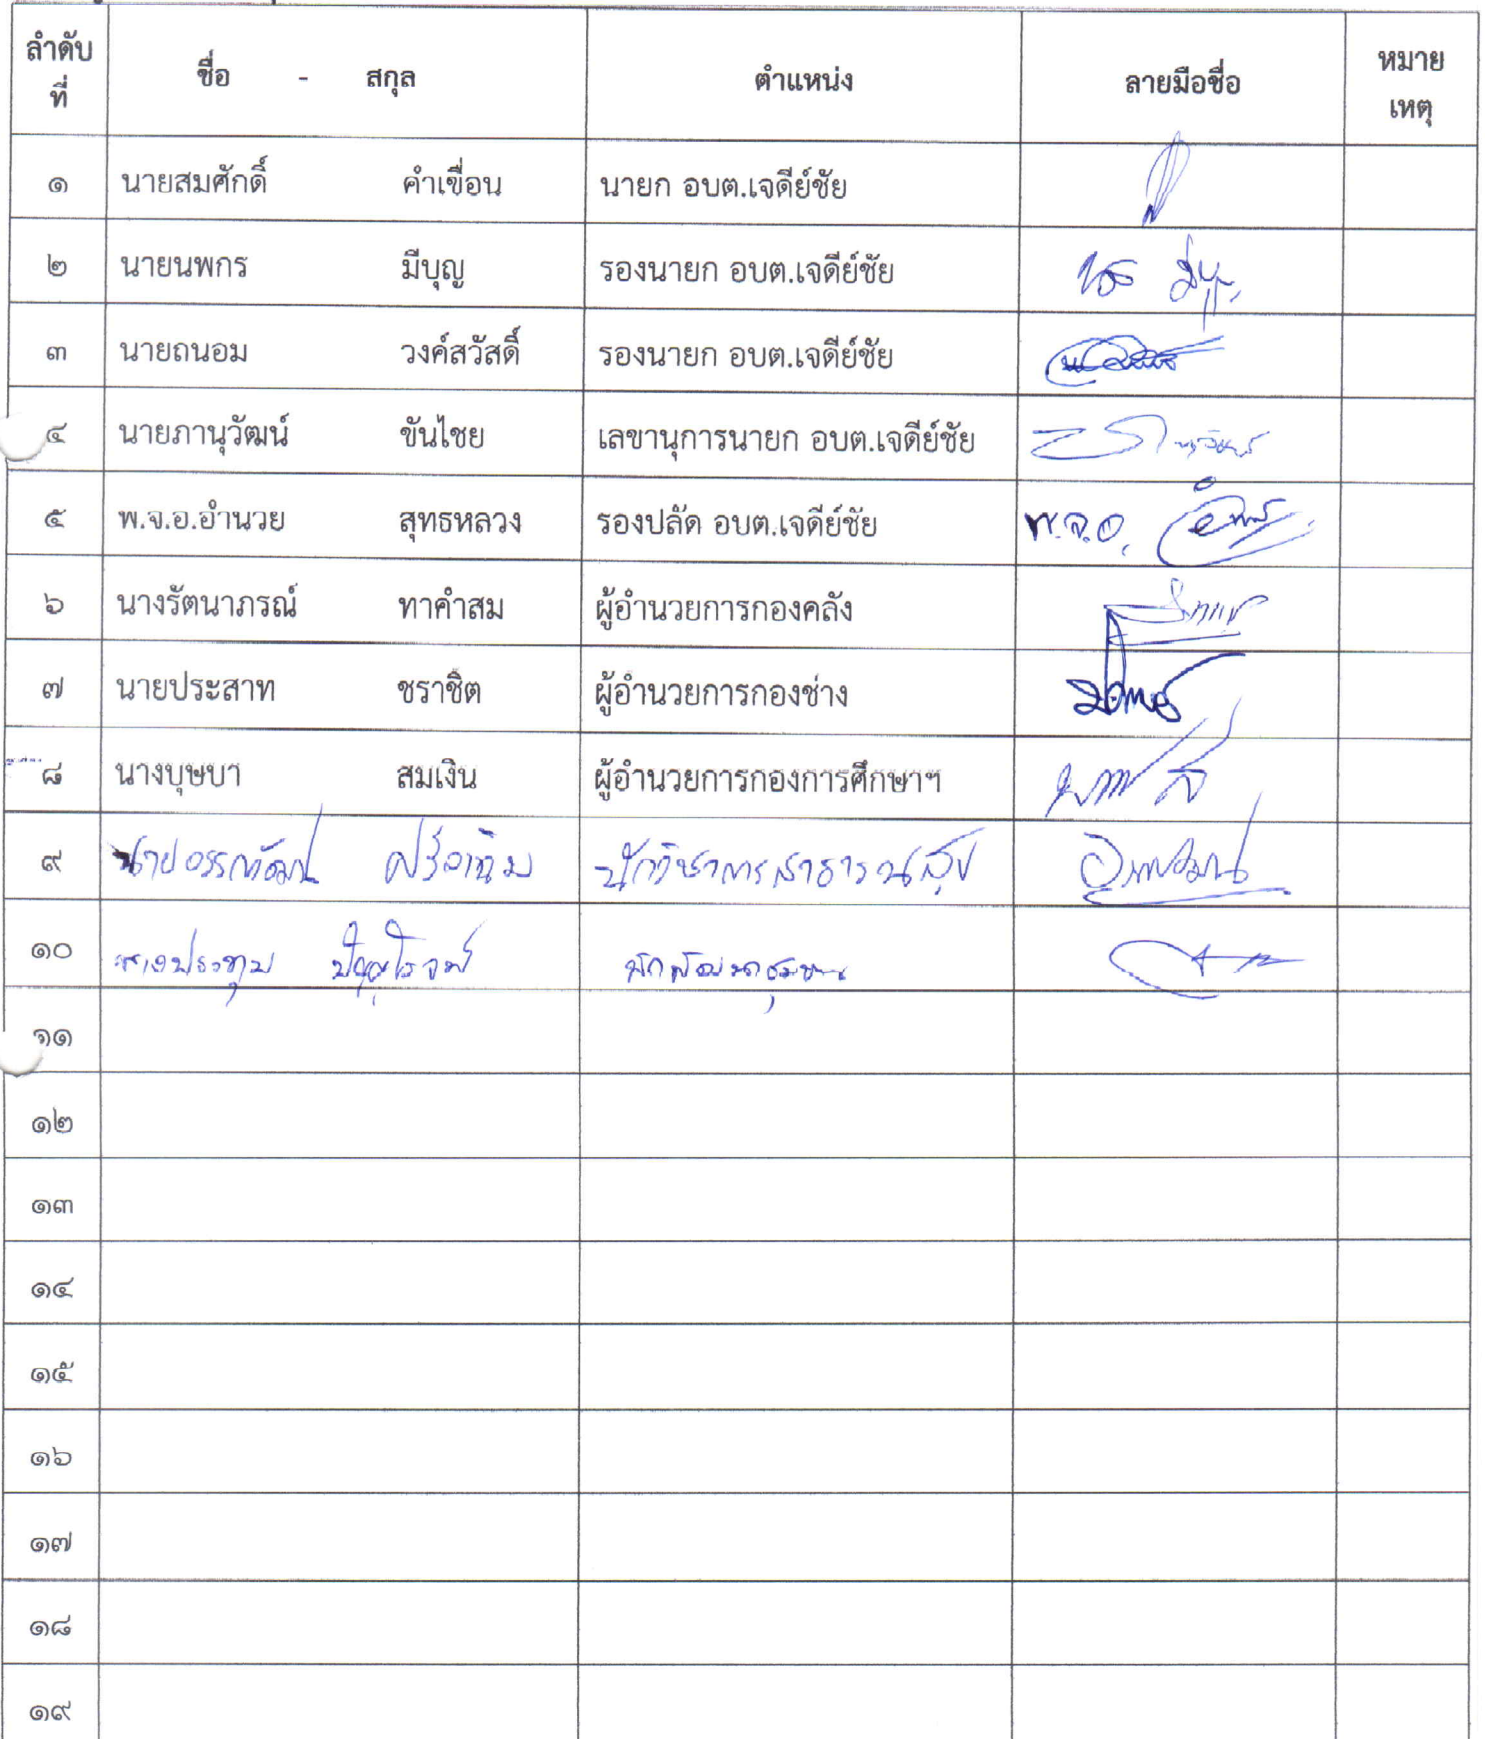 ลำดับ
ที่
ชื่อ - สกุล
ตำแหน่ง
ลายมือชื่อ
หมาย
เหตุ
๑ นายสมศักดิ์ คำเขื่อน นายก อบต.เจดีย์ชัย
๒ นายนพกร มีบุญ รองนายก อบต.เจดีย์ชัย
๓ นายถนอม วงค์สวัสดิ์ รองนายก อบต.เจดีย์ชัย
๔ นายภานุวัฒน์ ขันไชย เลขานุการนายก อบต.เจดีย์ชัย
๕ พ.จ.อ.อำนวย สุทธหลวง รองปลัด อบต.เจดีย์ชัย พ.จ.อ.
๖ นางรัตนาภรณ์ ทาคำสม ผู้อำนวยการกองคลัง
๗ นายประสาท ชราชิต ผู้อำนวยการกองช่าง
๘ นางบุษบา สมเงิน ผู้อำนวยการกองการศึกษาฯ
๙ นาย นักวิชาการสาธารณสุข
๑๐ นางประทุม ปัญญาโรจน์ นักพัฒนาชุมชน
๑๑
๑๒
๑๓
๑๔
๑๕
๑๖
๑๗
๑๘
๑๙